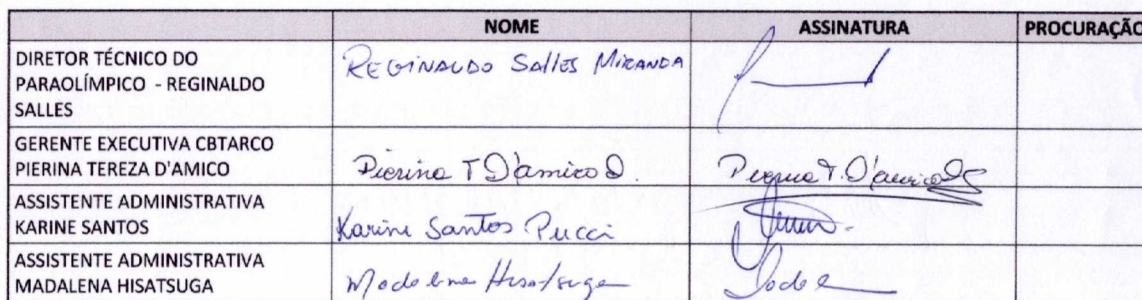 NOME ASSINATURA PROCURAÇÃO
DIRETOR TÉCNICO DO
PARAOLÍMPICO - REGINALDO
SALLES
REGINALDO Salles MIRANDA
GERENTE EXECUTIVA CBTARCO
PIERINA TEREZA D'AMICO
Pierina T D'amico D.
Pierina T. D'amico
ASSISTENTE ADMINISTRATIVA
KARINE SANTOS
Karine Santos Pucci
ASSISTENTE ADMINISTRATIVA
MADALENA HISATSUGA
Madalena Hisatsuga